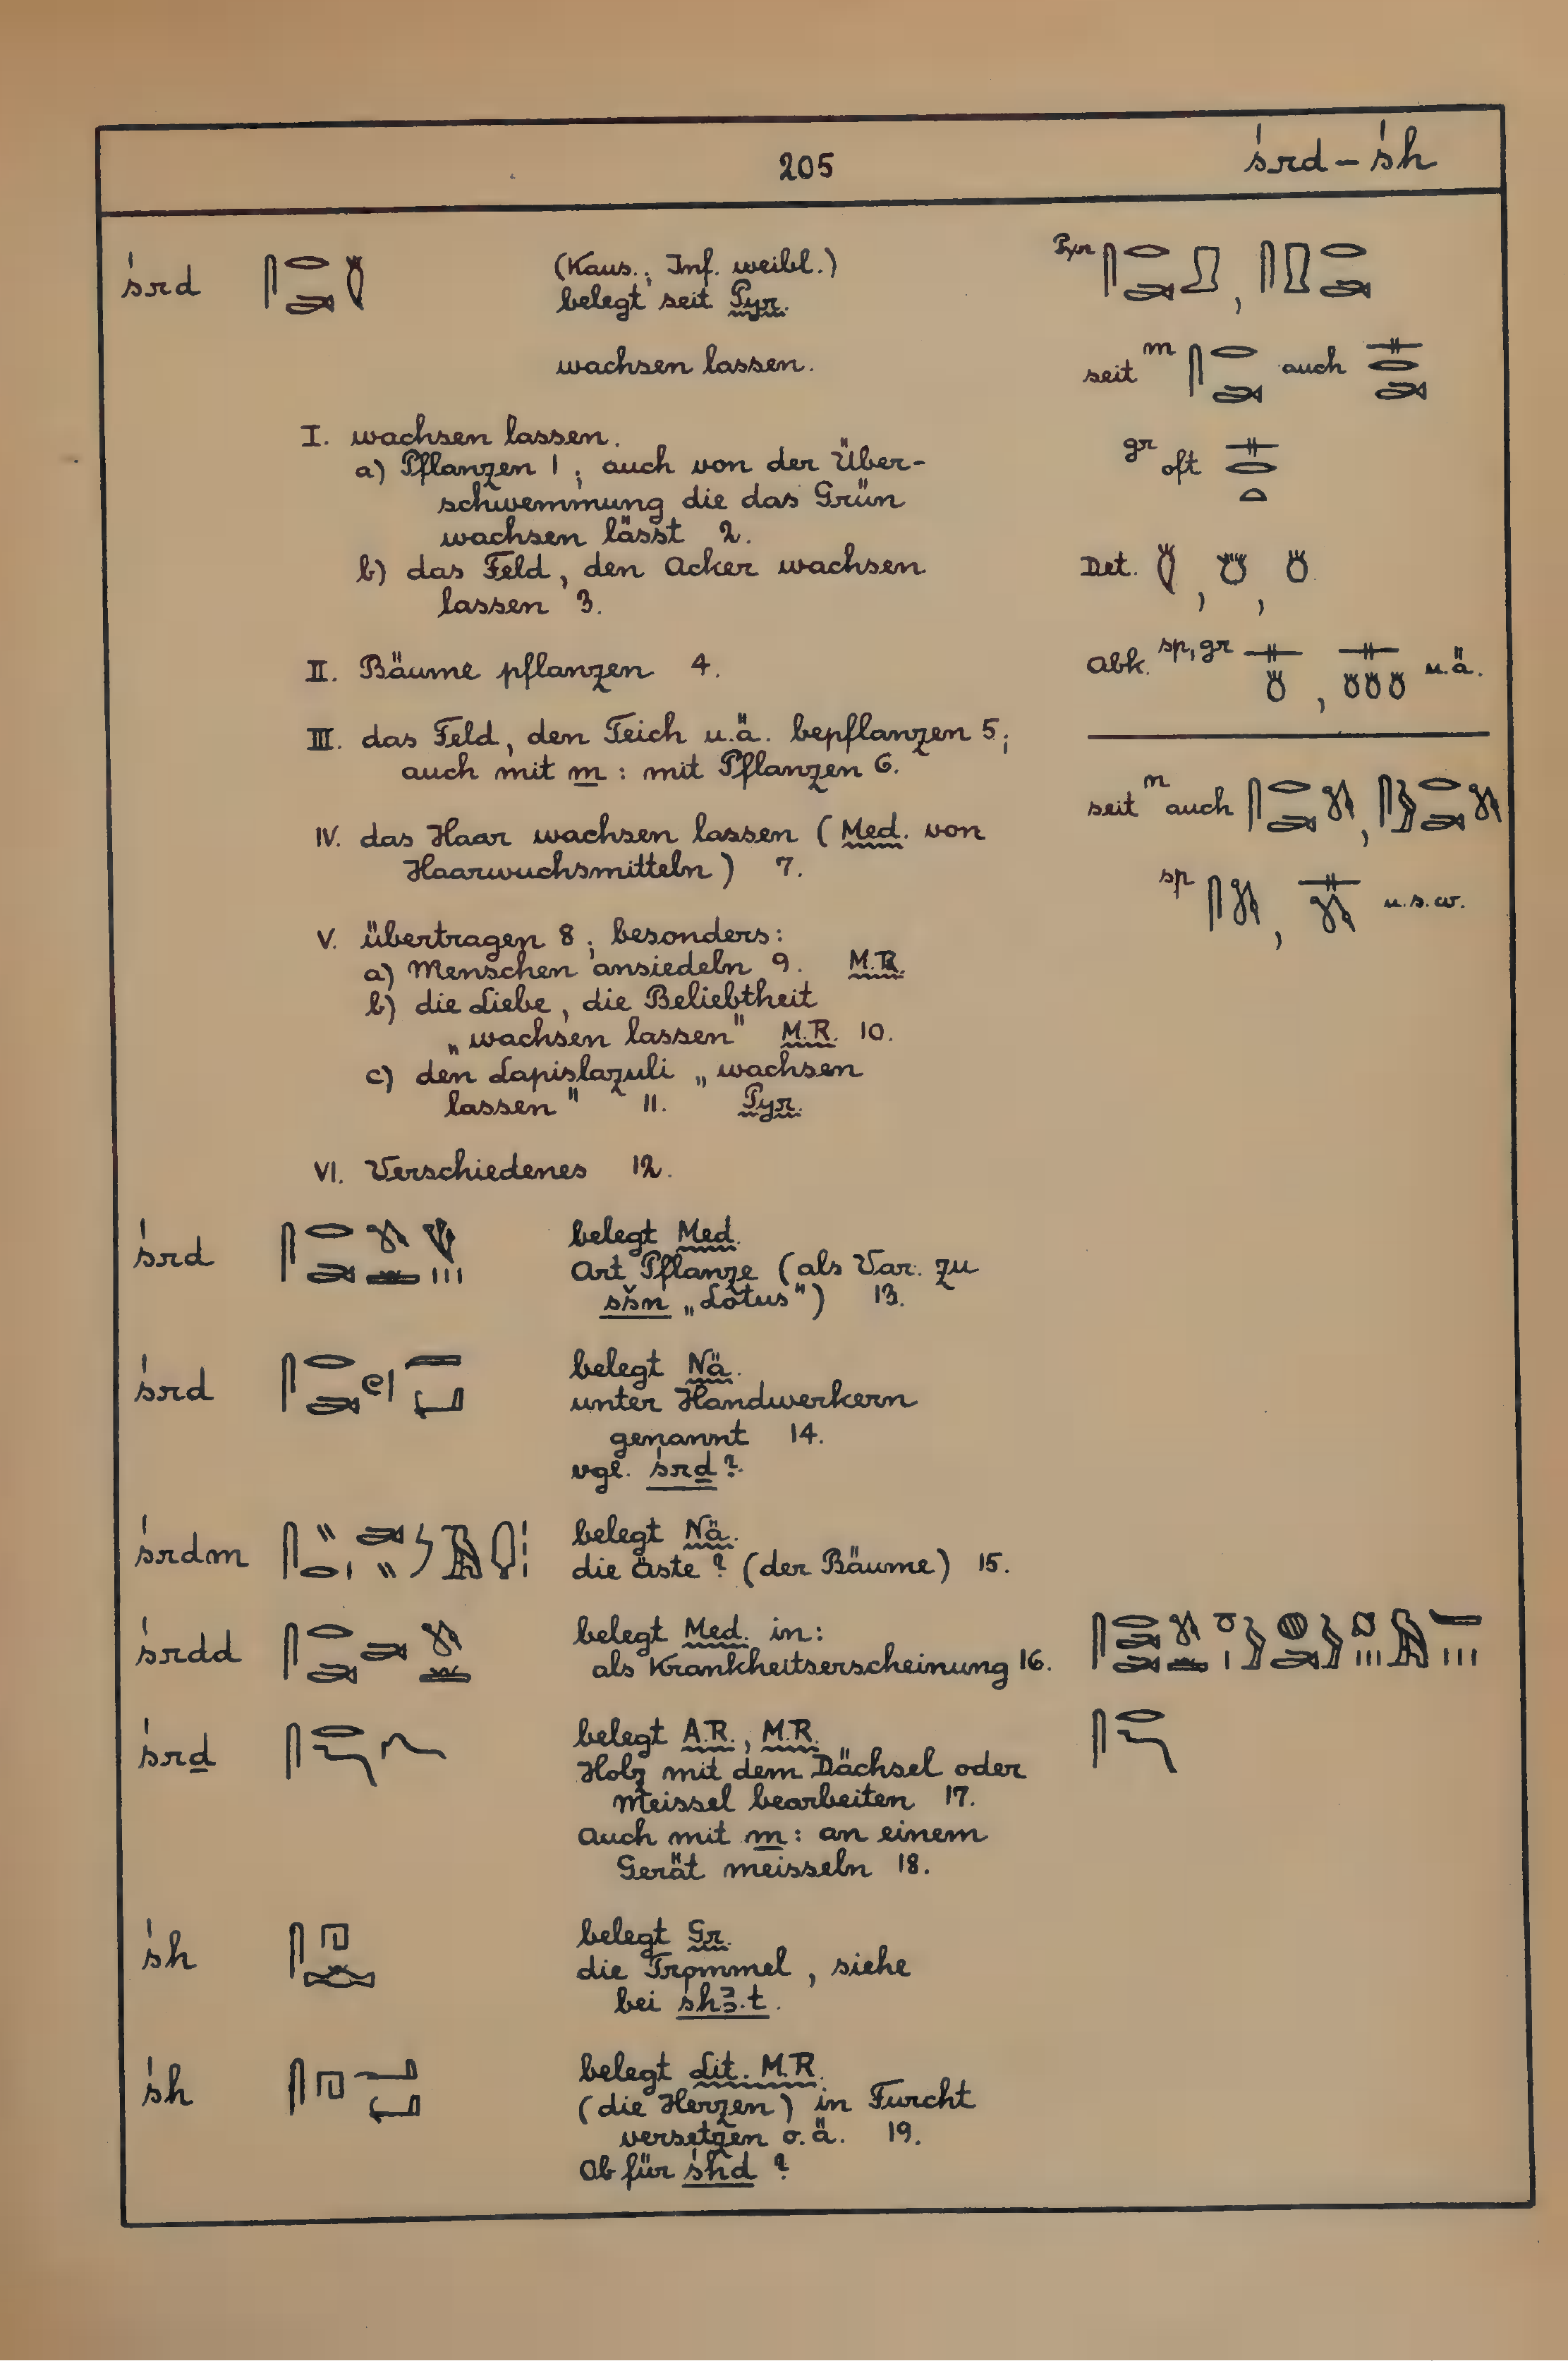 205 śrd – śh
śrd (Kaus., Inf. weibl.) Pyr ,
belegt seit Pyr.
wachsen lassen. seit m auch
I. wachsen lassen.
a) Pflanzen 1; auch von der Über- gr oft
schwemmung die das Grün
wachsen lässt 2.
b) das Feld, den Acker wachsen Det. , ,
lassen 3.
II. Bäume pflanzen 4. Abk. sp, gr , u.ä.
III. das Feld, den Teich u.ä. bepflanzen 5;
auch mit m : mit Pflanzen 6. seit n auch ,
IV. das Haar wachsen lassen (Med. von
Haarwuchsmitteln) 7. sp , u.s.w.
V. übertragen 8; besonders:
a) Menschen ansiedeln 9. M.R.
b) die Liebe, die Beliebtheit
„wachsen lassen" M.R. 10.
c) den Lapislazuli „wachsen
lassen" 11. Pyr.
VI. Verschiedenes 12.
śrd belegt Med.
Art Pflanze (als Var. zu
sšn „Lotus") 13.
śrd belegt Nä.
unter Handwerkern
genannt 14.
vgl. śrḏ?
śrdm belegt Nä.
die Äste? (der Bäume) 15.
śrdd belegt Med. in:
als Krankheitserscheinung 16.
śrḏ belegt A.R., M.R.
Holz mit dem Dächsel oder
Meissel bearbeiten 17.
Auch mit m : an einem
Gerät meisseln 18.
śh belegt Gr.
die Trommel, siehe
bei shꜣ.t.
śh belegt Lit. M.R.
(die Herzen) in Furcht
versetzen o.ä. 19.
Ob für śhd ?